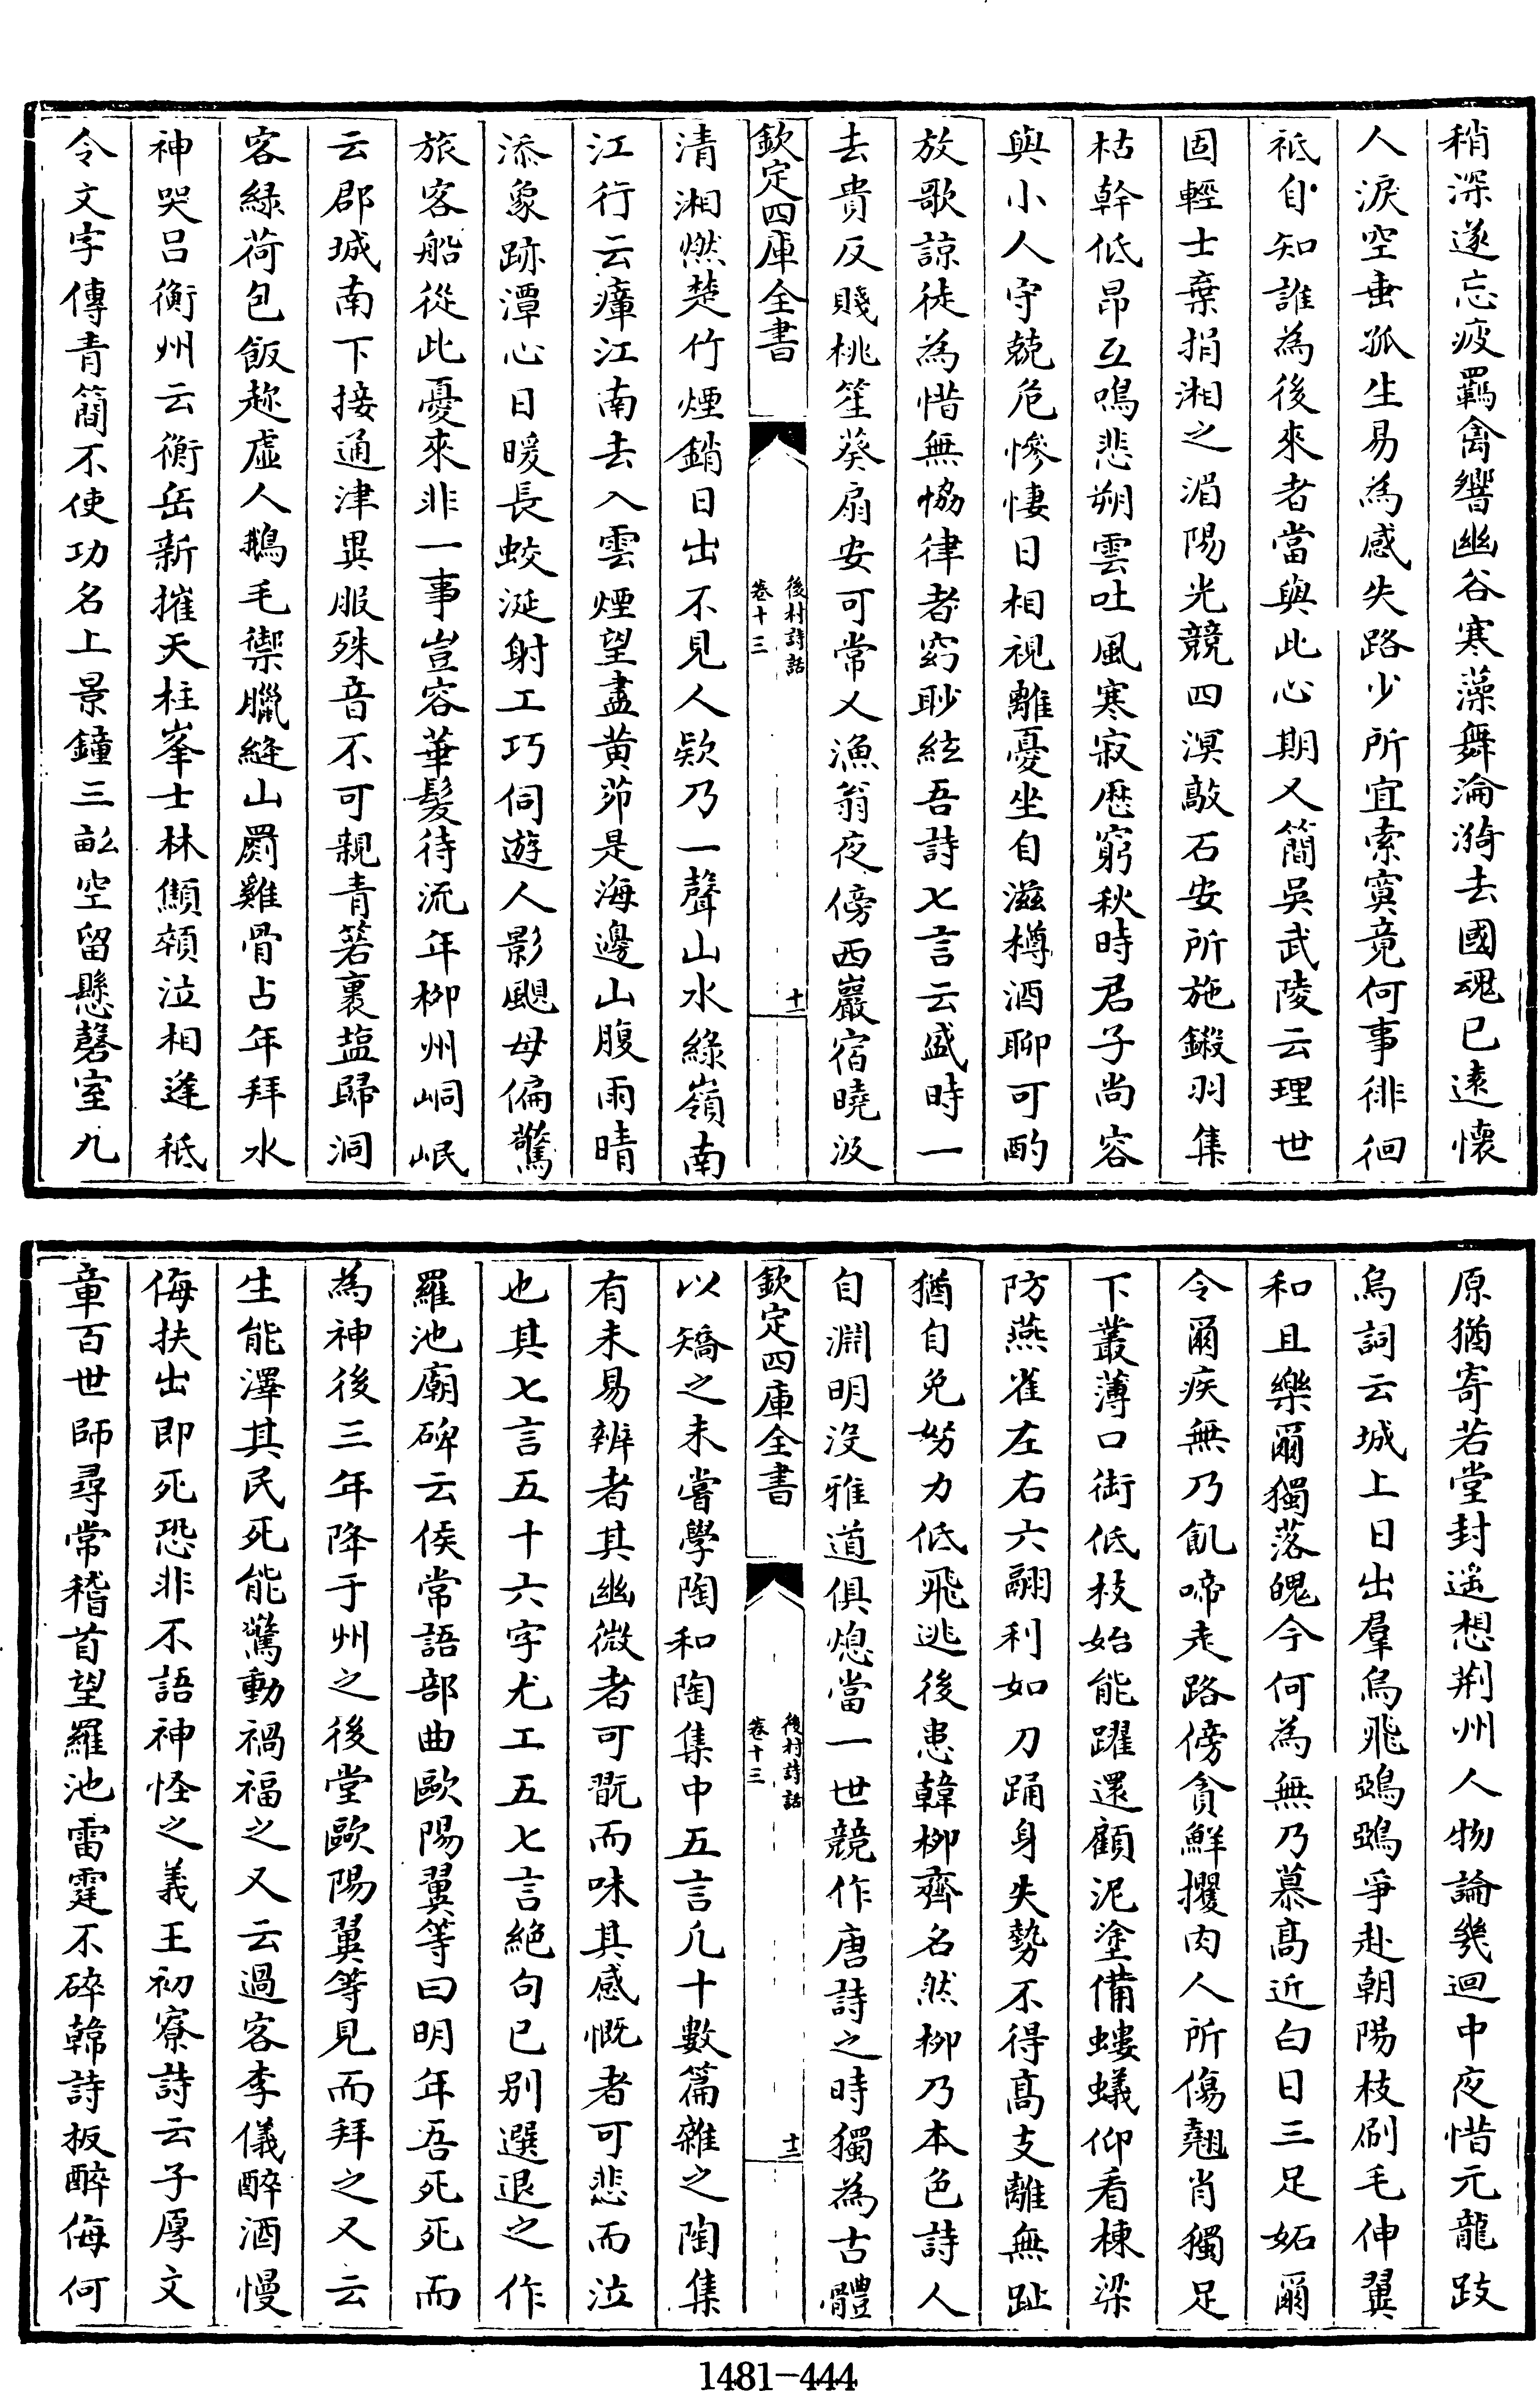 稍深遂忘疲羈禽響幽谷寒藻舞淪漪去國魂已逺懷
人淚空垂孤生易為感失路少所宜索寞竟何事徘徊
祗自知誰為後來者當與此心期又簡吳武陵云理世
固輕士棄捐湘之湄陽光競四溟敲石安所施鎩羽集
枯幹低昂互鳴悲朔雲吐風寒寂歴窮秋時君子尚容
與小人守兢危慘悽日相視離憂坐自滋樽酒聊可酌
放歌諒徒為惜無恊律者窈眇絃吾詩七言云盛時一
去貴反賤桃笙葵扇安可常又漁翁夜傍西巖宿曉汲
欽定四庫全書
後村詩話
卷十三
十一
清湘燃楚竹煙銷日出不見人欵乃一聲山水緑嶺南
江行云瘴江南去入雲煙望盡黄茆是海邊山腹雨晴
添象跡潭心日暖長蛟涎射工巧伺遊人影颶母偏驚
旅客船從此憂來非一事豈容華髮待流年柳州峒岷
云郡城南下接通津異服殊音不可親青箬裹鹽歸洞
客緑荷包飯趂虛人鵝毛禦臘縫山罽雞骨占年拜水
神哭吕衡州云衡岳新摧天柱峯士林顦顇泣相逢秪
令文字傳青簡不使功名上景鐘三畝空留懸磬室九
原猶寄若堂封遥想荆州人物論幾迴中夜惜元龍跂
烏詞云城上日出羣烏飛鵶鵶爭赴朝陽枝刷毛伸翼
和且樂爾獨落魄今何為無乃慕髙近白日三足妬爾
令爾疾無乃飢啼走路傍貪鮮攫肉人所傷翹肖獨足
下叢薄口銜低枝始能躍還顧泥塗備螻蟻仰看棟梁
防燕雀左右六翮利如刀踊身失勢不得髙支離無趾
猶自免努力低飛逃後患韓柳齊名然柳乃本色詩人
自淵明沒雅道俱熄當一世競作唐詩之時獨為古體
欽定四庫全書
後村詩話
卷十三
十二
以矯之未嘗學陶和陶集中五言凡十數篇雜之陶集
有未易辨者其幽微者可翫而味其感慨者可悲而泣
也其七言五十六字尤工五七言絶句已别選退之作
羅池廟碑云侯常語部曲歐陽翼等曰明年吾死死而
為神後三年降于州之後堂歐陽翼等見而拜之又云
生能澤其民死能驚動禍福之又云過客李儀醉酒慢
侮扶出即死恐非不語神怪之義王初寮詩云子厚文
章百世師尋常稽首望羅池雷霆不碎韓詩板醉侮何
1481-444